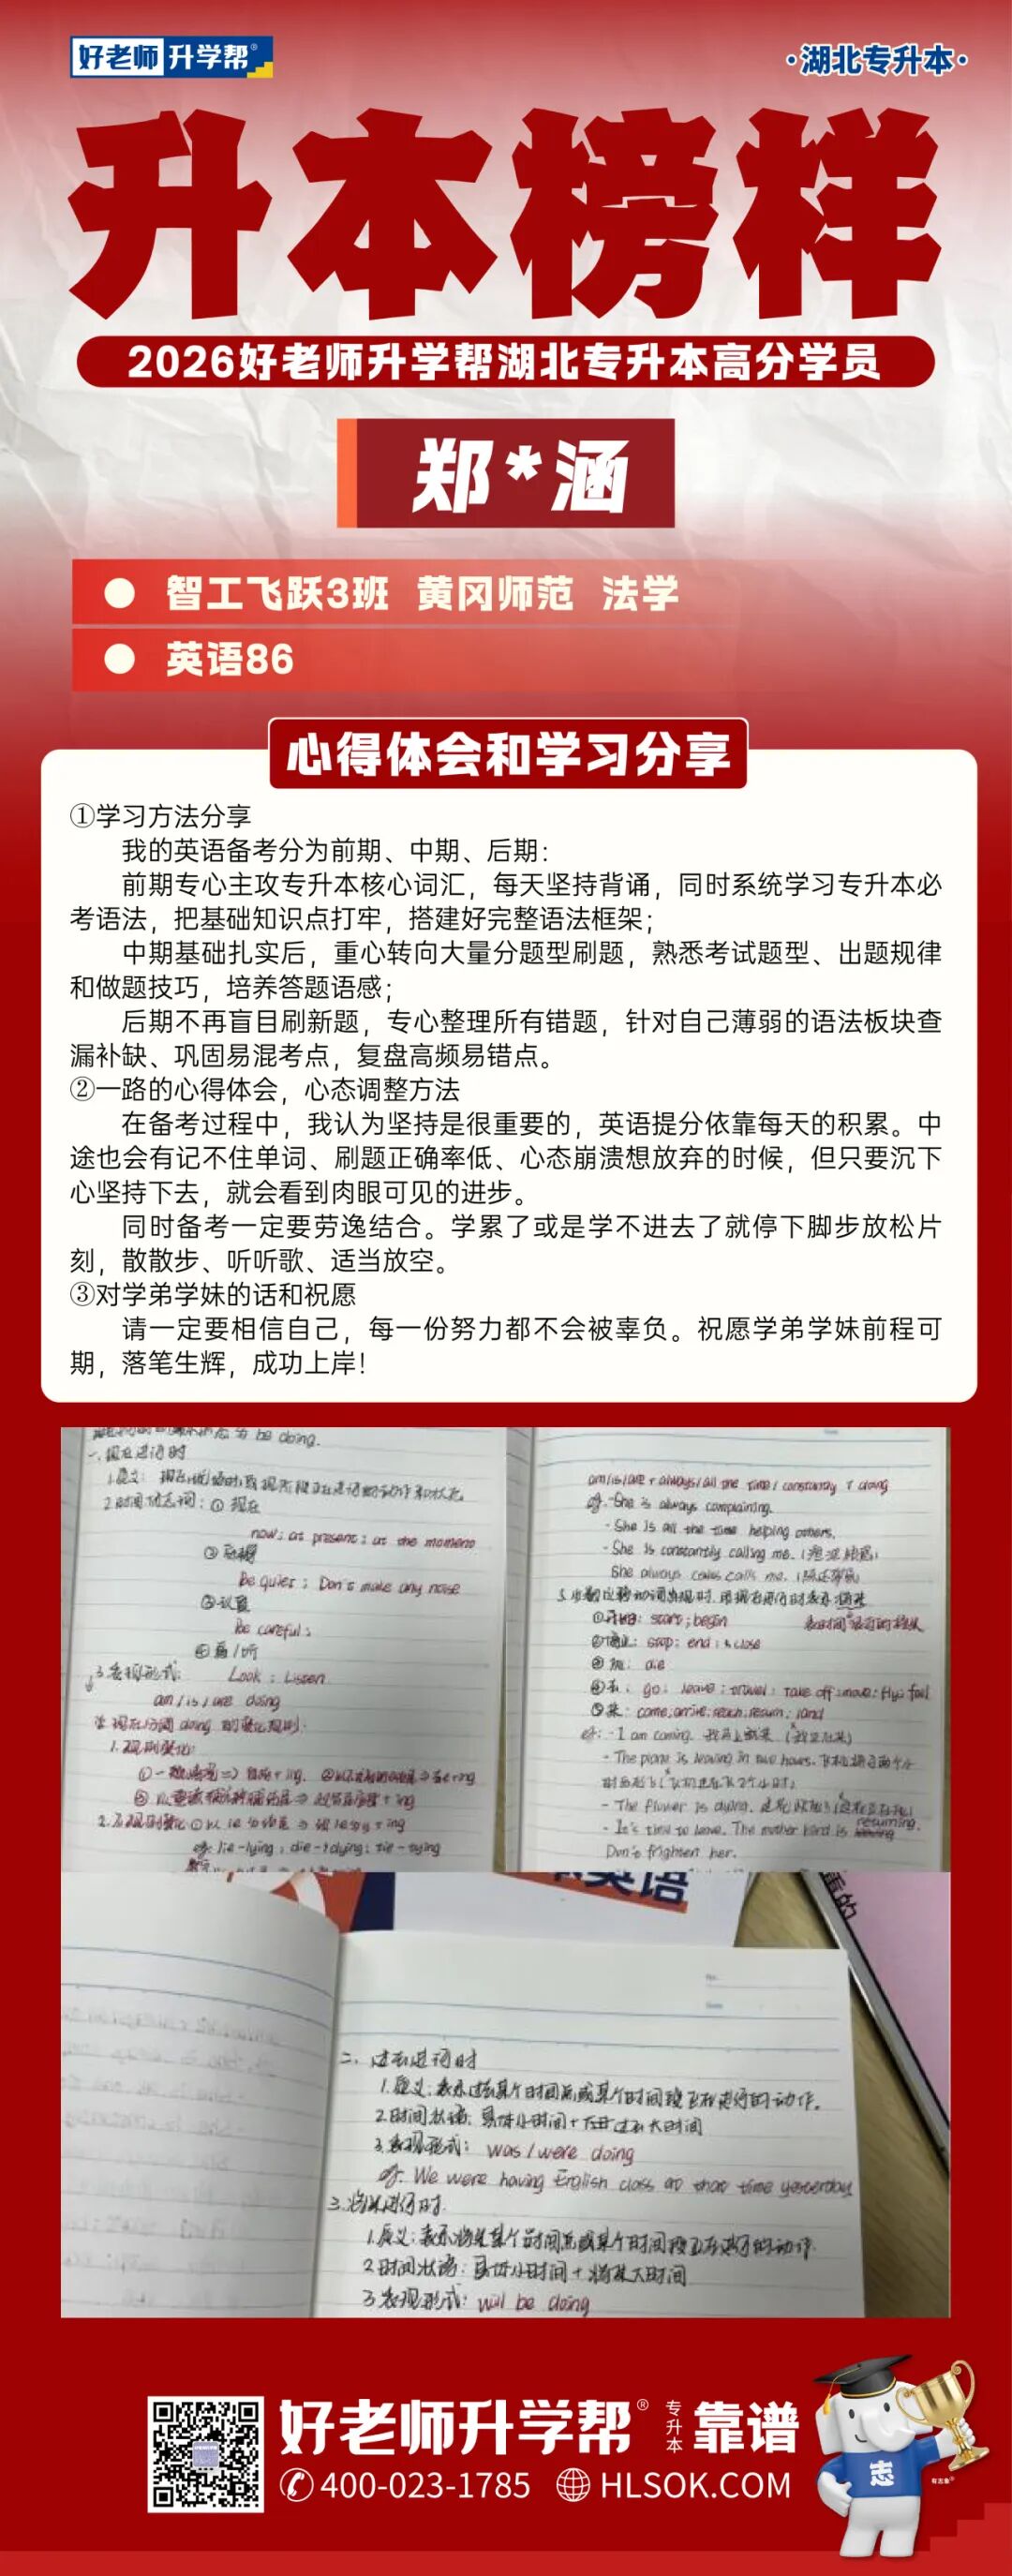 好老师升学帮®
·湖北专升本·
升本榜样
2026好老师升学帮湖北专升本高分学员
郑*涵
智工飞跃3班 黄冈师范 法学
英语86
心得体会和学习分享
①学习方法分享
我的英语备考分为前期、中期、后期：
前期专心主攻专升本核心词汇，每天坚持背诵，同时系统学习专升本必
考语法，把基础知识点打牢，搭建好完整语法框架；
中期基础扎实后，重心转向大量分题型刷题，熟悉考试题型、出题规律
和做题技巧，培养答题语感；
后期不再盲目刷新题，专心整理所有错题，针对自己薄弱的语法板块查
漏补缺、巩固易混考点，复盘高频易错点。
②一路的心得体会，心态调整方法
在备考过程中，我认为坚持是很重要的，英语提分依靠每天的积累。中
途也会有记不住单词、刷题正确率低、心态崩溃想放弃的时候，但只要沉下
心坚持下去，就会看到肉眼可见的进步。
同时备考一定要劳逸结合。学累了或是学不进去了就停下脚步放松片
刻，散散步、听听歌、适当放空。
③对学弟学妹的话和祝愿
请一定要相信自己，每一份努力都不会被辜负。祝愿学弟学妹前程可
期，落笔生辉，成功上岸！
be doing.
一、现在进行时
2.时间标志词：① 现在
now; at present; at the moment
Be quiet; Don't make any noise
③认真
Be careful;
④看/听
Look; Listen
3.表现形式：
am/is/are doing
现在分词 doing 的变化规则：
1.规则变化：
eg: lie-lying; die→dying; tie-tying
am/is/are + always/all the time/constantly + doing
eg. - She is always complaining.
- She is all the time helping others.
- She is constantly calling me.
She always calls me.
①开始：start; begin
②停止：stop; end; close
③死：die
④去：go; leave; travel; take off; move; fly; fall
⑤来：come; arrive; reach; return; land
eg: - I am coming. 我马上就来
- The plane is leaving in two hours.
- The flower is dying.
- It's time to leave. The mother bird is returning.
Don't frighten her.
英语
二、过去进行时
1.定义：表示过去某个时间点或某个时间段正在进行的动作。
2.时间状语：具体小时间+过去大时间
3.表现形式：was/were doing
eg. We were having English class at that time yesterday
三.将来进行时.
1.定义：表示将来某个时间点或某个时间段正在进行的动作.
2.时间状语：具体小时间+将来大时间
3.表现形式：will be doing
好老师升学帮® 专升本 靠谱
400-023-1785 HLSOK.COM
志
有志象®